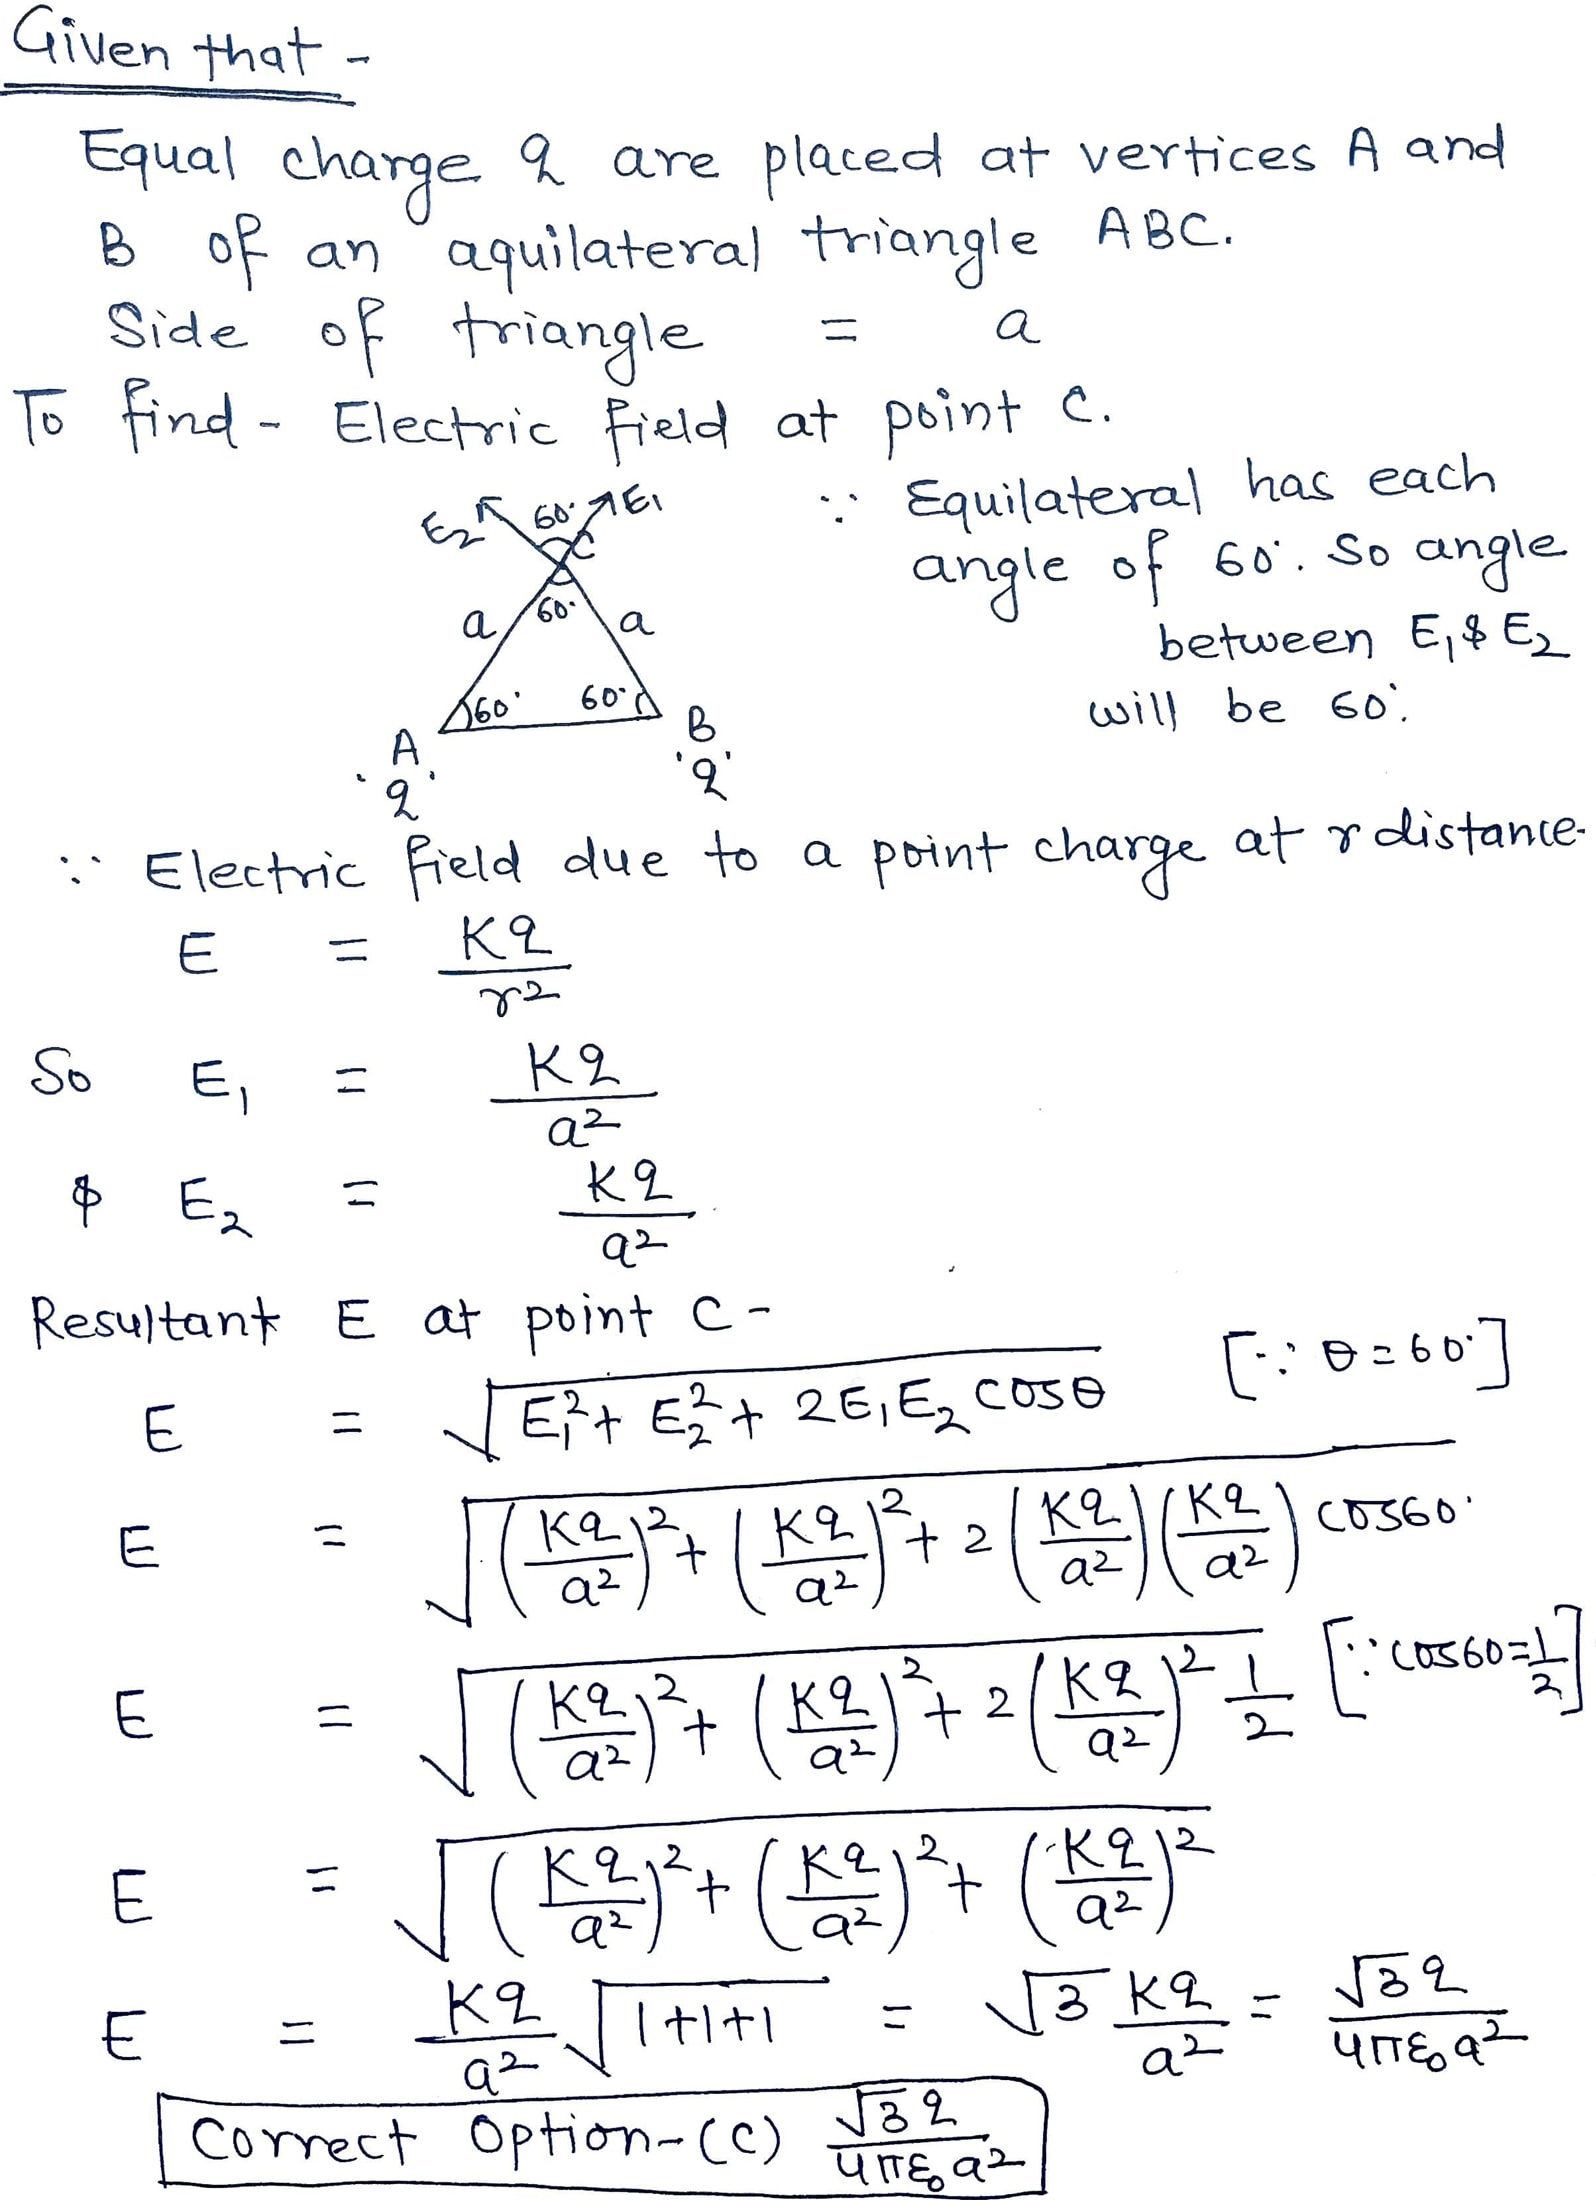 Given that -
Equal charge q are placed at vertices A and
B of an aquilateral triangle ABC.
Side of triangle = a
To find - Electric field at point C.
E₂ 60° E₁
C
a 60° a
60° 60°
A B
q q
∵ Equilateral has each
angle of 60°. So angle
between E₁ & E₂
will be 60°.
∵ Electric field due to a point charge at r distance-
E = Kq/r²
So E₁ = Kq/a²
& E₂ = Kq/a²
Resultant E at point C -
E = √(E₁² + E₂² + 2E₁E₂ cosθ) [∵ θ = 60°]
E = √((Kq/a²)² + (Kq/a²)² + 2(Kq/a²)(Kq/a²) cos60°)
E = √((Kq/a²)² + (Kq/a²)² + 2(Kq/a²)² 1/2) [∵ cos60 = 1/2]
E = √((Kq/a²)² + (Kq/a²)² + (Kq/a²)²)
E = Kq/a² √(1+1+1) = √3 Kq/a² = √3q/4πε₀a²
Correct Option-(C) √3q/4πε₀a²